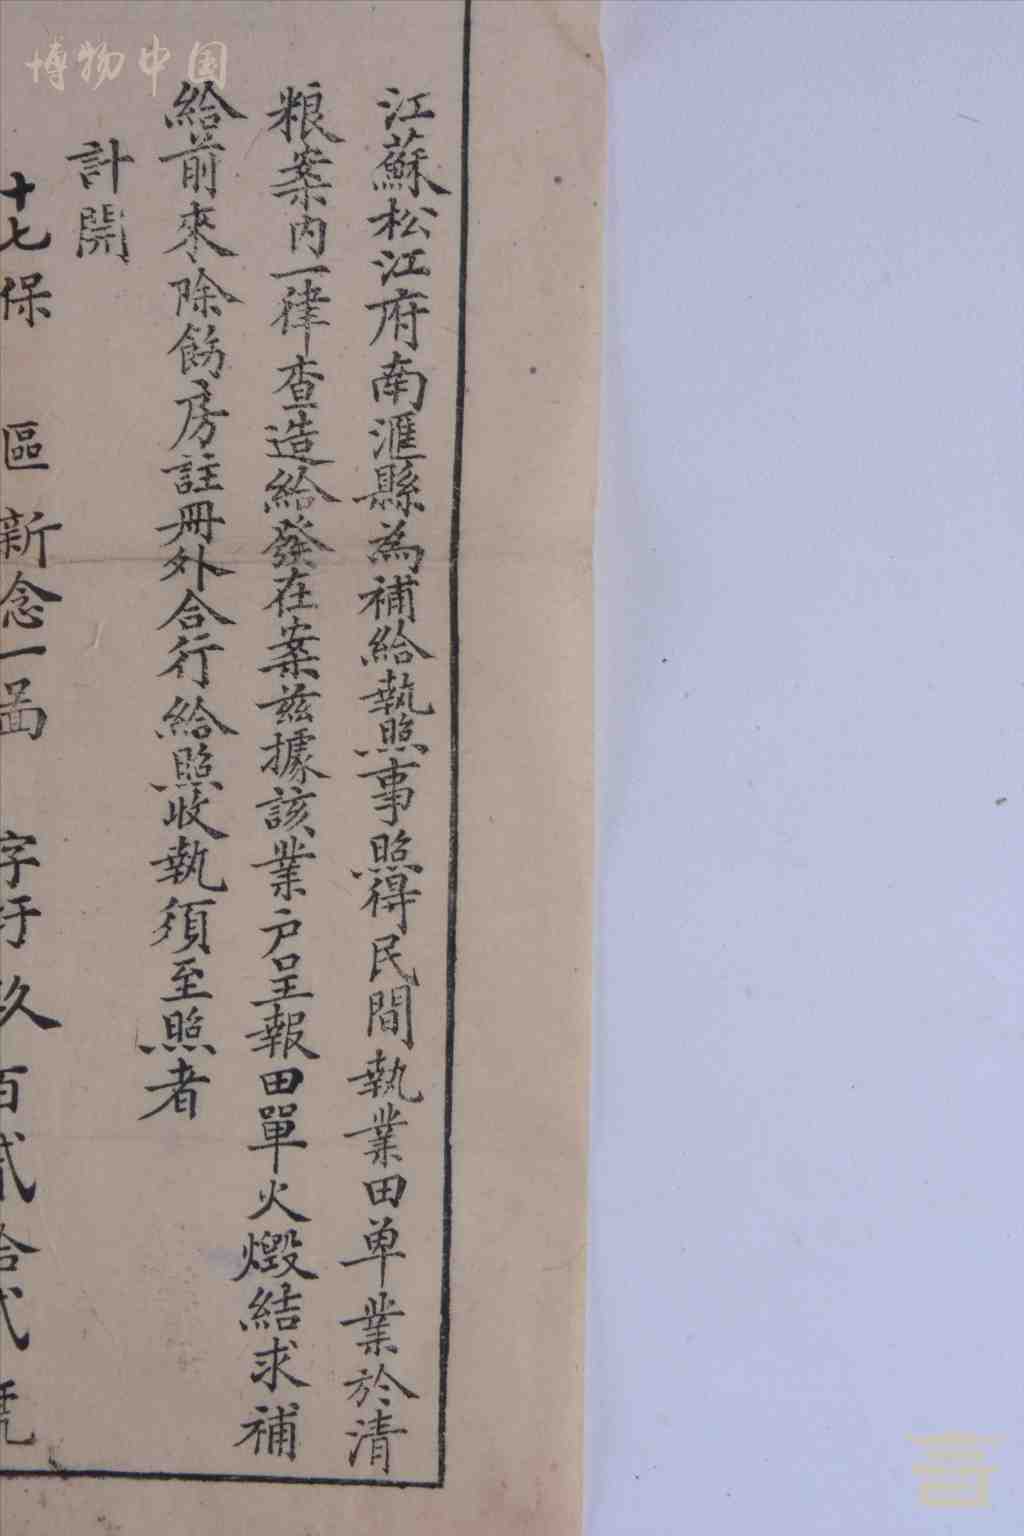 博物中国
江蘇松江府南滙縣為補給執照事照得民間執業田单業於清
粮案内一律查造給發在案兹據該業户呈報田單火燬結求補
給前來除飭房註冊外合行給照收執須至照者
計開
十七保 區新念一啚 字圩玖百貳拾弍號